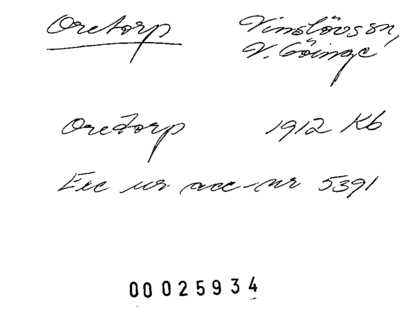 Oretorp
Vinslövs sn,
V. Göinge
Oretorp 1912 Kb
Exc ur acc-nr 5391
00025934